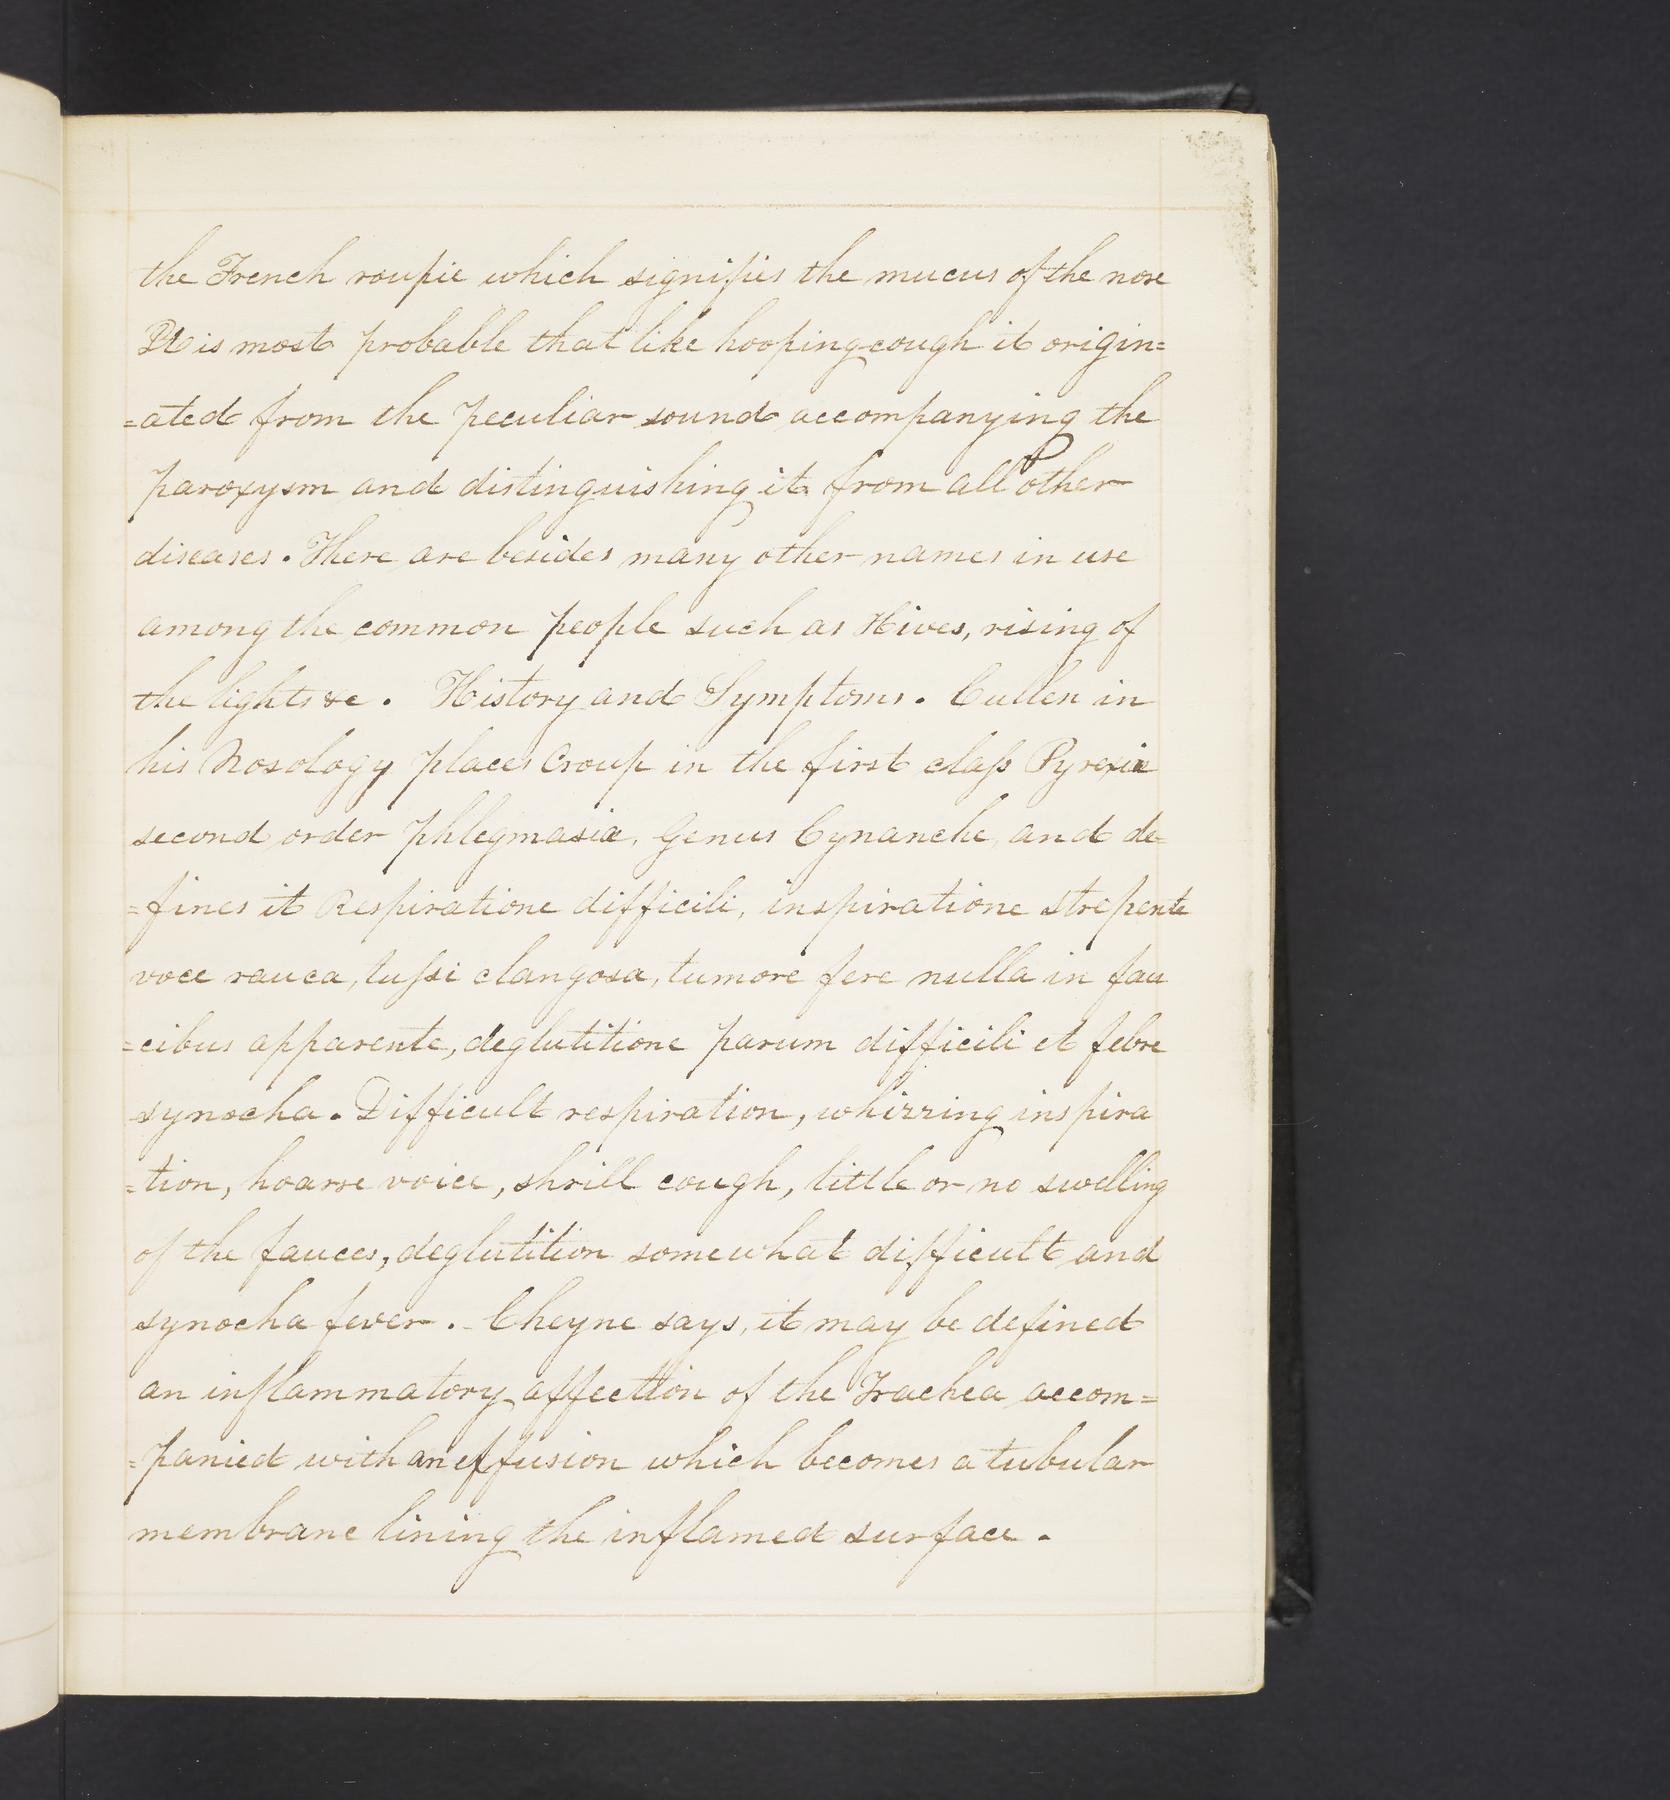 the French roupie which signifies the mucus of the nose
It is most probable that like hooping cough it origin=
=ated from the peculiar sound accompanying the
paroxysm and distinguishing it from all other
diseases. There are besides many other names in use
among the common people such as Hives, rising of
the lights &c. History and Symptoms. Cullen in
his Nosology places Croup in the first claſs Pyrexiæ
second order phlegmasiæ, Genus Cynanche, and de-
=fines it Respiratione difficili, inspiratione strepente
voce rauca, tuſsi clangosa, tumore fere nulla in fau
=cibus apparente, deglutitione parum difficili et febre
synocha. Difficult respiration, whizzing inspira
=tion, hoarse voice, shrill cough, little or no swelling
of the fauces, deglutition somewhat difficult and
synocha fever. - Cheyne says, it may be defined
an inflammatory affection of the Trachea accom=
=panied with an effusion which becomes a tubular
membrane lining the inflamed surface.